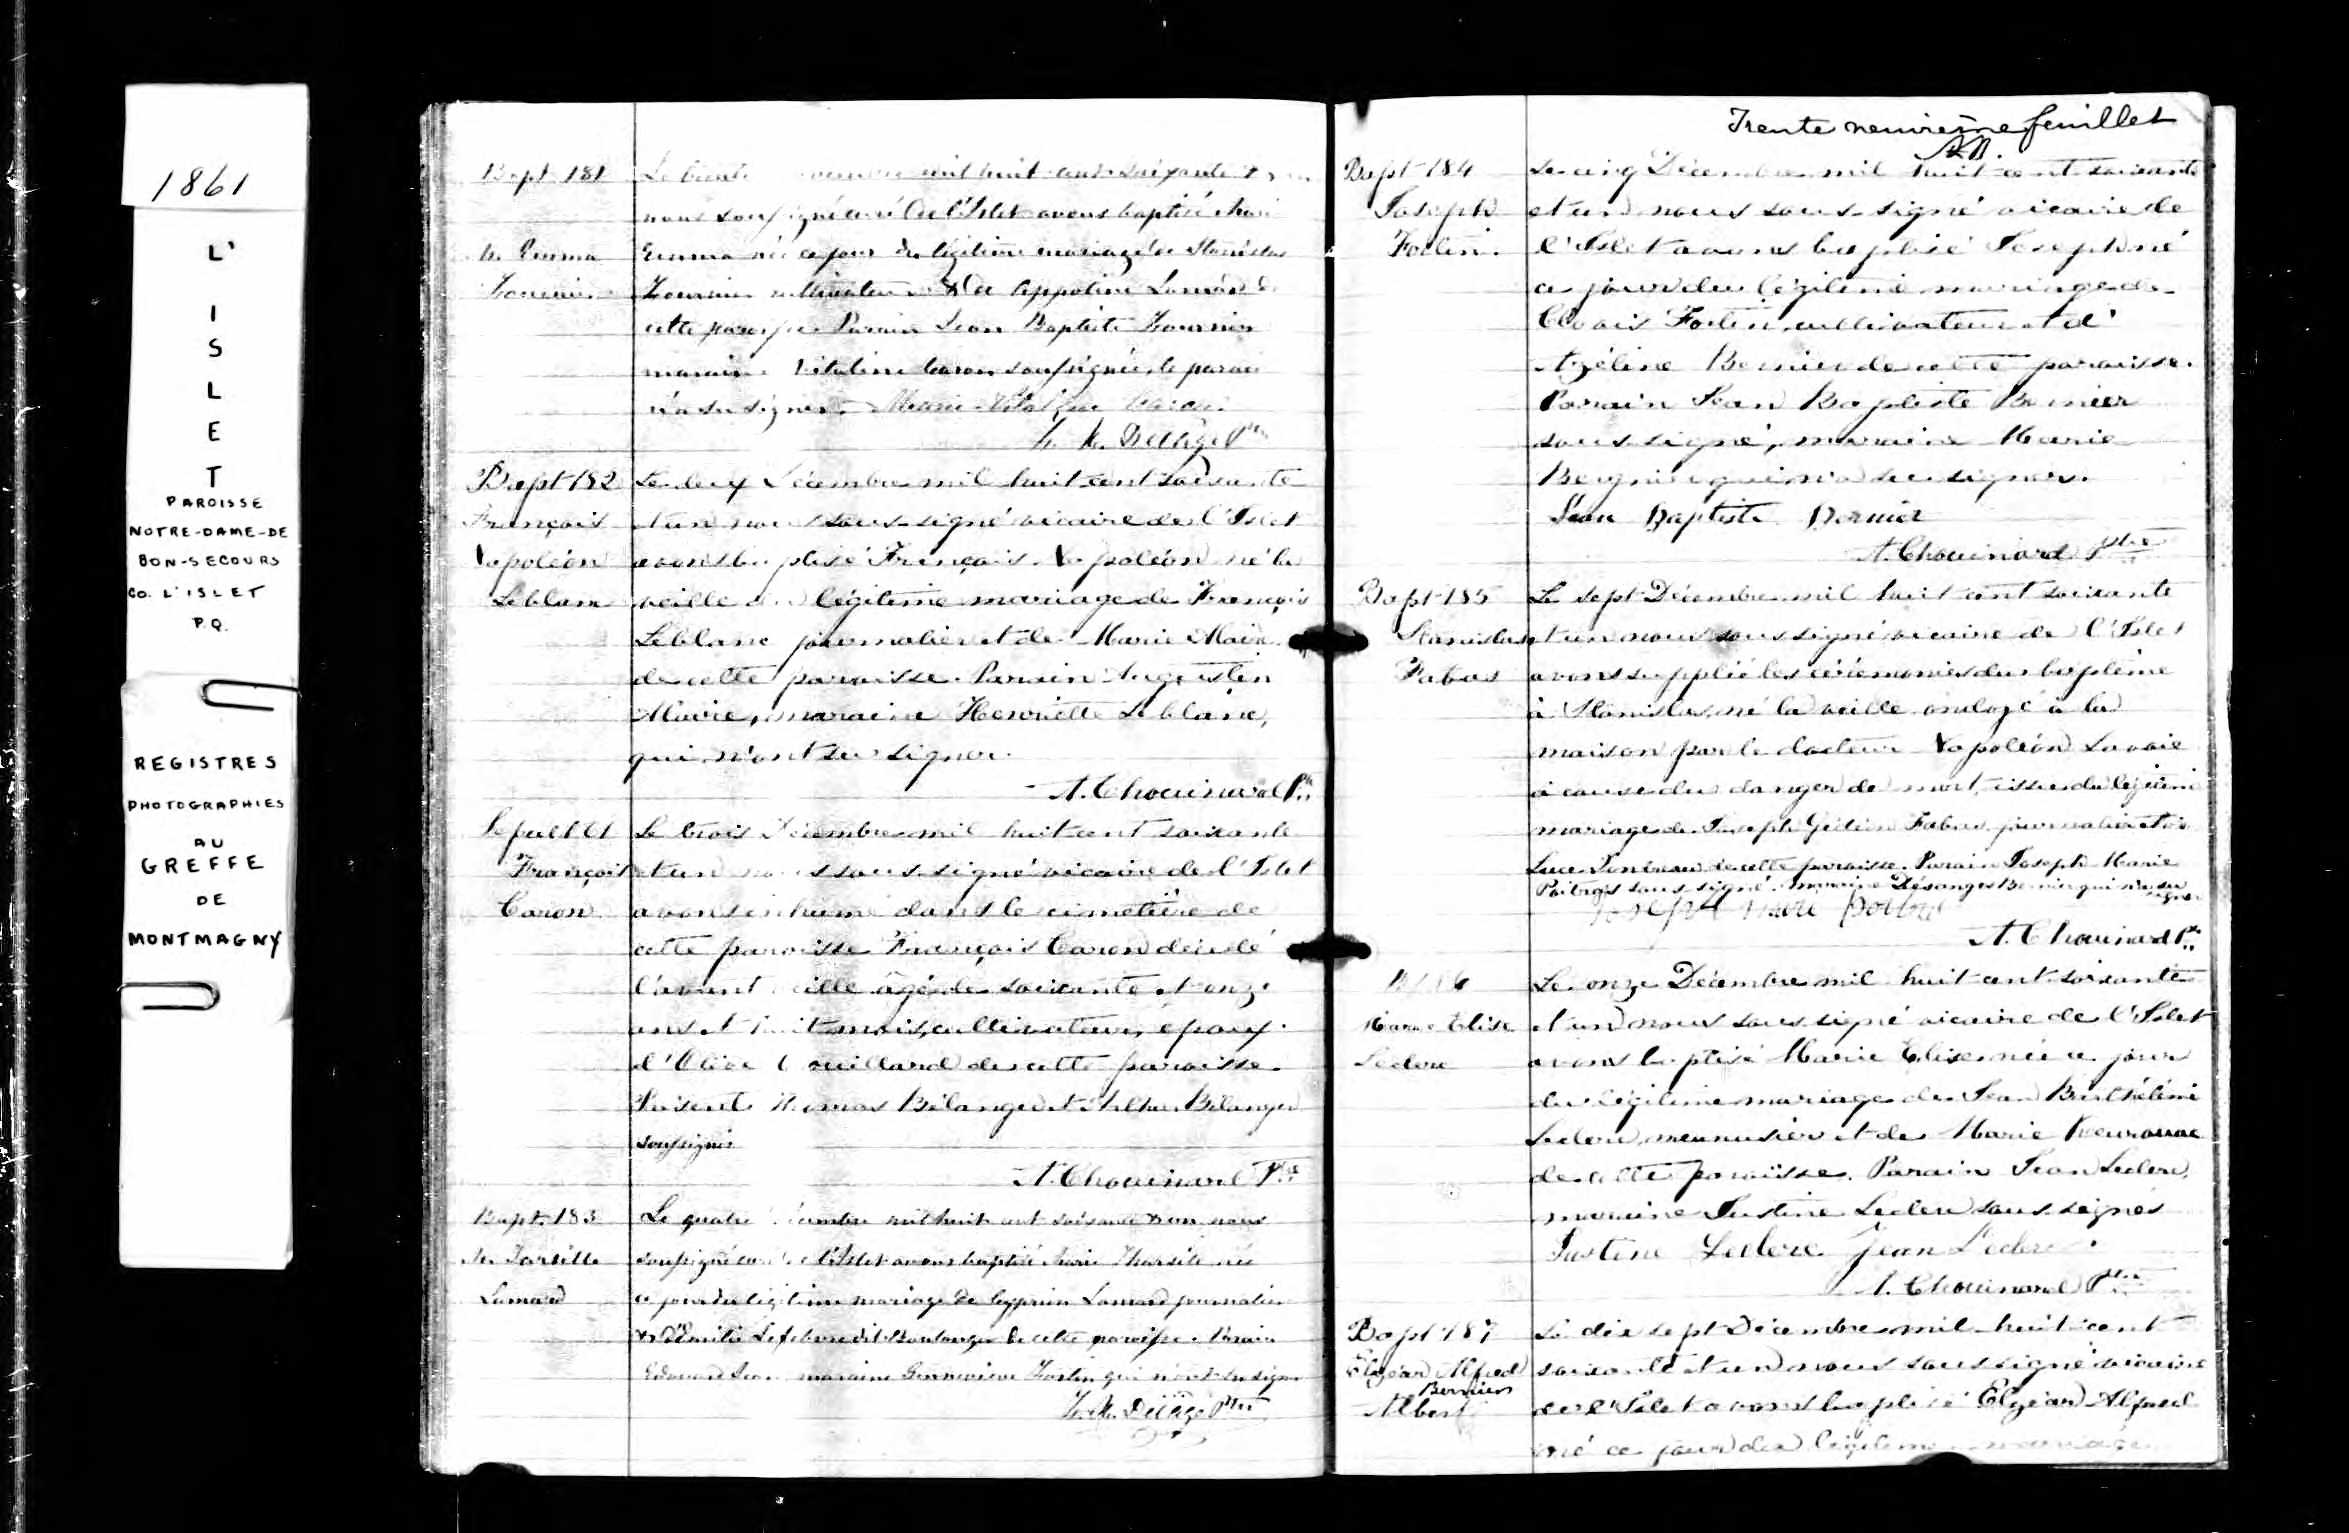 1861
L'
I
S
L
E
T
PAROISSE
NOTRE-DAME-DE
BON-SECOURS
CO. L'ISLET
P.Q.
REGISTRES
PHOTOGRAPHIES
AU
GREFFE
DE
MONTMAGNY
Bapt 181
M. Emma
Le trente mil huit cent soixante &
nous soussigné curé de l'Islet avons baptisé Marie
Emma née ce jour du légitime mariage de Stanislas
Fournier cultivateur & de Lemond de
cette paroisse Parain Jean Baptiste Fournier
maraine Vitaline Caron soussignée, le parain
n'a su signer.
Bapt 182
François
Napoléon
Leblanc
Le deux Décembre mil huit cent soixante
et un nous sous-signé vicaire de l'Islet
avons baptisé François Napoléon né la
veille du légitime mariage de François
Leblanc journalier et de Marie
de cette paroisse. Parain Augustin
maraine Henriette Leblanc,
qui n'ont su signer.
A. Chouinard Ptre
Sepult
François
Caron
Le trois Décembre mil huit cent soixante
et un nous sous-signé vicaire de l'Islet
avons inhumé dans le cimetière de
cette paroisse François Caron décédé
l'avant veille âgé de soixante et onze
ans et huit mois, cultivateur, époux
d' de cette paroisse.
Présents Thomas Bélanger et Bélanger
soussignés
A. Chouinard Ptre
Bapt. 183
Le quatre Décembre mil huit cent soixante & un nous
soussigné curé de l'Islet avons baptisé Marie Tharsile née
ce jour du légitime mariage de Cyprien journalier
& d'Emilie Lefebvre dit Boulanger de cette paroisse. Parain
Edouard maraine Geneviève Fortin qui n'ont su signer
Trente neuvieme feuillet
Bapt 184
Joseph
Fortin.
Le cinq Décembre mil huit cent soixante
et un nous sous-signé vicaire de
l'Islet avons baptisé Joseph né
ce jour du légitime mariage de
Clovis Fortin, cultivateur et d'
Azéline Bernier de cette paroisse.
Parain Jean Baptiste Bernier
sous-signé, maraine Marie
qui n'a su signer.
Jean Baptiste Bernier
A. Chouinard Ptre
Bapt 185
Stanislas
Fabas
Le sept Décembre mil huit cent soixante
et un nous sous signé vicaire de l'Islet
avons supplié les cérémonies du baptême
à Stanislas, né la veille ondoyé à la
maison par le docteur Napoléon Lavoie
à cause du danger de mort, issu du légitime
mariage de Joseph Fabas journalier et de
Luce de cette paroisse. Parain Joseph Marie
sous signé. maraine Désanges Bernier qui n'a su
signer
A. Chouinard Ptre
Marie Elise
Leclerc
Le onze Décembre mil huit cent soixante
et un nous sous signé vicaire de l'Islet
avons baptisé Marie Elise née ce jour
du légitime mariage de Jean Barthélémi
Leclerc, menuisier et de Marie Keurouac
de cette paroisse. Parain Jean Leclerc,
maraine Justine Leclerc sous signés
Justine Leclerc Jean Leclerc
A. Chouinard Ptre
Bapt 187
Elzéar Alfred
Bernier
Albert
Le dix sept Décembre mil huit cent
soixante et un nous sous signé vicaire
de l'Islet avons baptisé Elzéar Alfred
né ce jour du légitime mariage